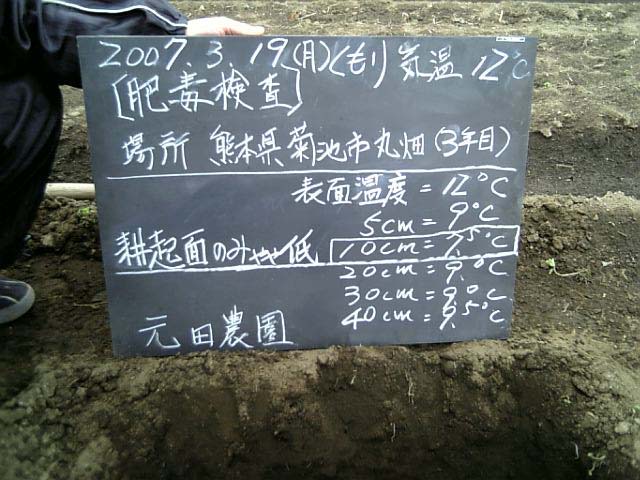 2007.3.19(月)(くもり) 気温 12℃
[肥毒検査]
場所 熊本県菊池市丸畑(3年目)
表面温度=12℃
5cm=9℃
耕起面のみやや低 10cm=7.5℃
20cm=9.0℃
30cm=9.0℃
40cm=9.5℃
元田農園